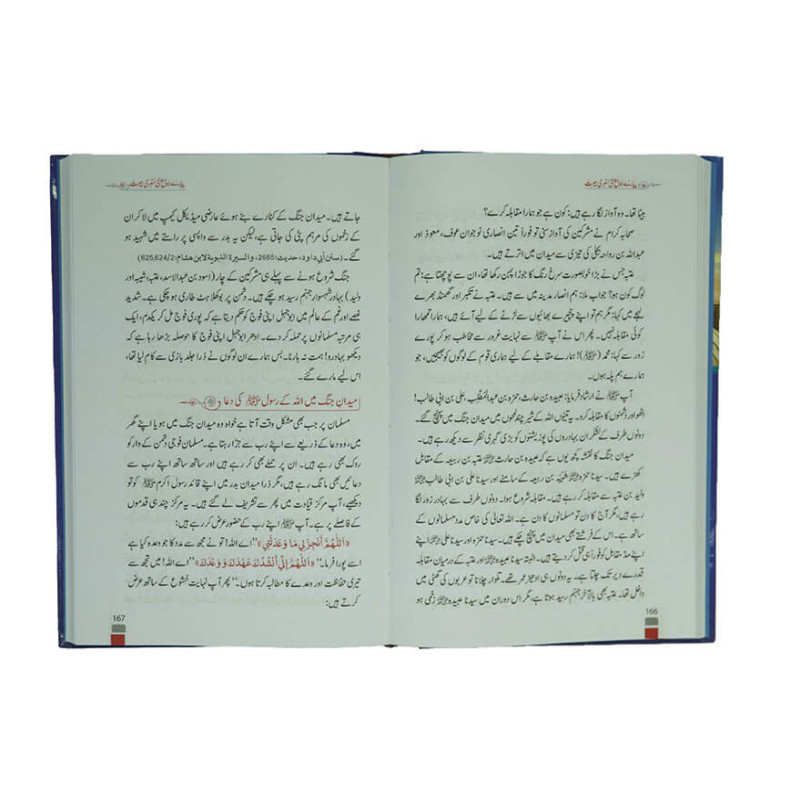 بیٹا تھا۔ وہ آواز لگا رہے ہیں: کون ہے جو ہمارا مقابلہ کرے؟
صحابہ کرام نے مشرکین کی آواز سنی تو فوراً تین انصاری نوجوان عوف، معوذ اور
عبداللہ بن رواحہ بجلی کی تیزی سے میدان میں اترتے ہیں۔
عتبہ جس نے بڑا خوبصورت سرخ رنگ کا جوڑا پہن رکھا تھا، ان سے پوچھتا ہے: تم
لوگ کون ہو؟ جواب ملا: ہم انصارِ مدینہ میں سے ہیں۔ عتبہ نے تکبر اور گھمنڈ بھرے
لہجے میں کہا: مگر ہم تو اپنے چچیرے بھائیوں سے لڑنے کے لیے آئے ہیں، ہمارا تمھارا
کوئی مقابلہ نہیں۔ پھر اس نے آپ ﷺ سے نہایت غرور سے مخاطب ہو کر پورے
زور سے کہا: محمد (ﷺ)! ہمارے مقابلے کے لیے ہماری قوم کے لوگوں کو بھیجیں، جو
ہمارے ہم پلہ ہوں۔
آپ ﷺ نے ارشاد فرمایا: عبیدہ بن حارث، حمزہ بن عبدالمطلب، علی بن ابی طالب!
اٹھو اور دشمنوں کا مقابلہ کرو۔ یہ تینوں اللہ کے شیر چند لمحوں میں میدانِ جنگ میں پہنچ گئے۔
دونوں طرف کے لشکر ان بہادروں کی پوزیشنوں کو بڑی گہری نظر سے دیکھ رہے ہیں۔
میدان جنگ کا نقشہ کچھ یوں ہے کہ عبیدہ بن حارث عتبہ بن ربیعہ کے مقابل
کھڑے ہیں۔ سیدنا حمزہ شیبہ بن ربیعہ کے سامنے اور سیدنا علی بن ابی طالب
ولید بن عتبہ سے مقابلہ کر رہے ہیں۔ مقابلہ شروع ہوا۔ دونوں طرف سے بہادر زور لگا
رہے ہیں، مگر آج کا دن تو مسلمانوں کا دن ہے۔ اللہ تعالیٰ کی خاص مدد مسلمانوں کے
ساتھ ہے۔ اس کے فرشتے بھی میدان میں پہنچ چکے ہیں۔ سیدنا حمزہ اور سیدنا علی اپنے
اپنے مدمقابل کو فوراً ہی قتل کر دیتے ہیں۔ البتہ سیدنا عبیدہ اور عتبہ کے درمیان مقابلہ
قدرے دیر تک چلتا ہے۔ یہ دونوں ہی ادھیڑ عمر تھے۔ تلوار چلانا تو عربوں کی گھٹی میں
داخل تھا۔ عتبہ بھی بالآخر جہنم رسید ہوتا ہے، مگر اس دوران میں سیدنا عبیدہ زخمی ہو
166
جاتے ہیں۔ میدان جنگ کے کنارے بنے ہوئے عارضی میڈیکل کیمپ میں لا کر ان
کے زخموں کی مرہم پٹی کی جاتی ہے، لیکن یہ بدر سے واپسی پر راستے میں شہید ہو
گئے۔ (سنن أبي داود، حديث:2665، والسيرة النبوية لابن هشام:625,624/2)
جنگ شروع ہونے سے پہلے ہی مشرکین کے چار (اسود بن عبدالاسد، عتبہ، شیبہ اور
ولید) بہادر شہسوار جہنم رسید ہو چکے ہیں۔ دشمن پر بوکھلاہٹ طاری ہو چکی ہے۔ شدید
غصے اور غم کے عالم میں ابوجہل اپنی فوج کو حکم دیتا ہے کہ پوری فوج مل کر یکدم، ایک
ہی مرتبہ مسلمانوں پر حملہ کر دے۔ ادھر ابوجہل اپنی فوج کا حوصلہ بڑھا رہا ہے کہ
دیکھو بہادرو! ہمت نہ ہارنا۔ بس ہمارے ان لوگوں نے ذرا جلد بازی سے کام لیا تھا،
اس لیے مارے گئے۔
میدانِ جنگ میں اللہ کے رسول ﷺ کی دعا
مسلمان پر جب بھی مشکل وقت آتا ہے خواہ وہ میدانِ جنگ میں ہو یا اپنے گھر
میں، وہ دعا کے ذریعے سے اپنے رب سے جڑا رہتا ہے۔ مسلمان فوجی دشمن کے وار کو
روک بھی رہے ہیں۔ ان پر حملے بھی کر رہے ہیں اور ساتھ ساتھ اپنے رب سے
دعائیں بھی مانگ رہے ہیں، مگر ذرا میدانِ بدر میں اپنے قائد رسولِ اکرم ﷺ کو تو
دیکھیے، آپ مرکزِ قیادت میں پھر سے تشریف لے گئے ہیں۔ یہ مرکز چند ہی قدموں
کے فاصلے پر ہے۔ آپ ﷺ اپنے رب کے حضور عرض کر رہے ہیں:
«اَللّٰهُمَّ أَنْجِزْلِي مَا وَعَدْتَنِي» ’’اے اللہ! تو نے مجھ سے مدد کا جو وعدہ کیا ہے
اسے پورا فرما۔‘‘ «اَللّٰهُمَّ إِنِّي أَنْشُدُكَ عَهْدَكَ وَوَعْدَكَ» ’’اے اللہ! میں تجھ سے
تیری حفاظت اور وعدے کا مطالبہ کرتا ہوں۔‘‘ پھر آپ نہایت خشوع کے ساتھ عرض
کرتے ہیں:
167